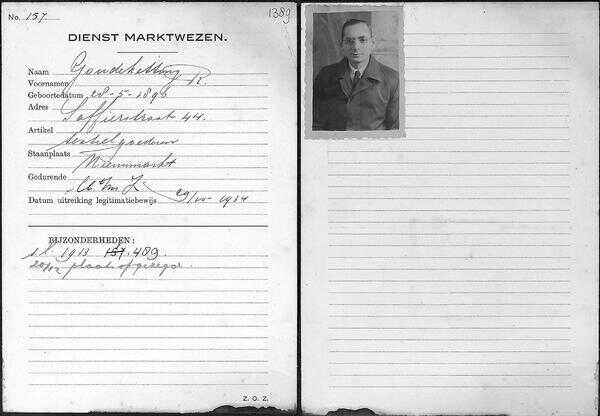 No. 157.
1389
DIENST MARKTWEZEN.
Naam Goudeketting
Voornamen R.
Geboortedatum 28-5-1896
Adres Saffierstraat 44.
Artikel
goederen
Staanplaats
Gedurende
Datum uitreiking legitimatiebewijs 29/ - 1934
BIJZONDERHEDEN:
1913 157. 489
plaats opgezegd.
Z. O. Z.